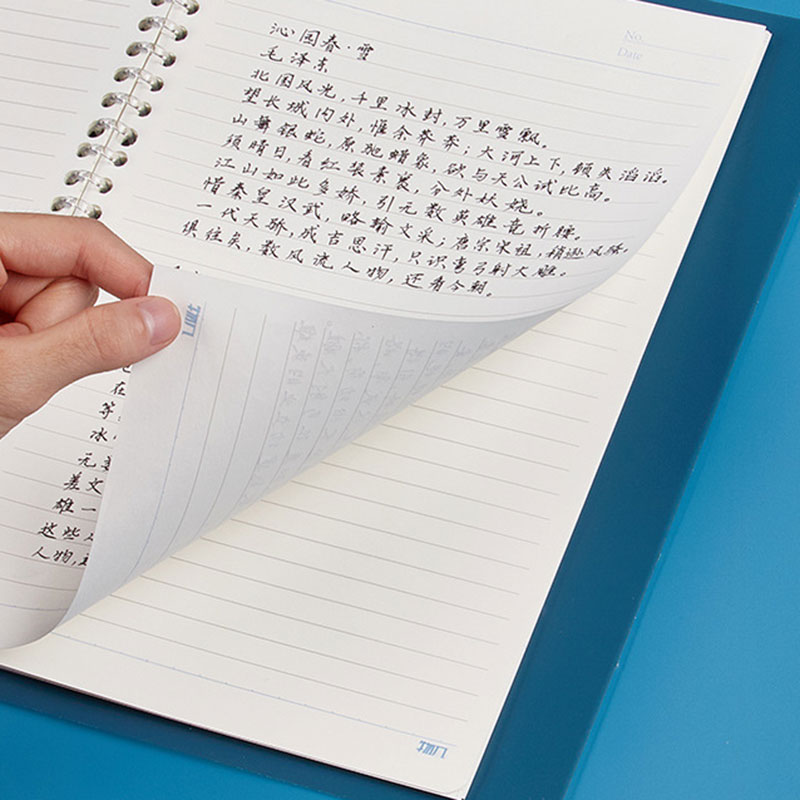 No.
Date
沁园春·雪
毛泽东
北国风光，千里冰封，万里雪飘。
望长城内外，惟余莽莽；大河上下，顿失滔滔。
山舞银蛇，原驰蜡象，欲与天公试比高。
须晴日，看红装素裹，分外妖娆。
江山如此多娇，引无数英雄竞折腰。
惜秦皇汉武，略输文采；唐宗宋祖，稍逊风骚。
一代天骄，成吉思汗，只识弯弓射大雕。
俱往矣，数风流人物，还看今朝。
在
等
冰
无
差文
雄一
这些
人物，